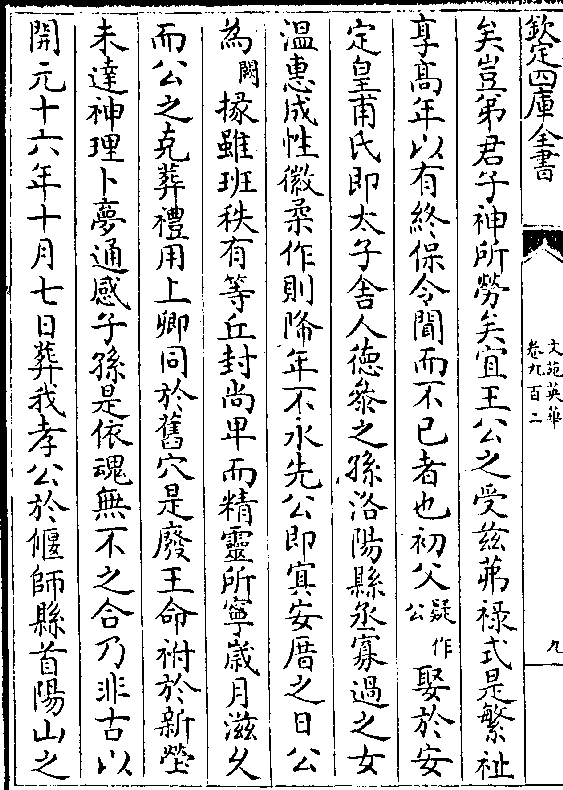 欽定四庫全書
文苑英華
卷九百二
九
矣豈弟君子神所勞矣宜王公之受兹茀禄式是繁祉
享髙年以有終保令聞而不已者也初父疑作公娶於安
定皇甫氏即太子舍人德叅之孫洛陽縣丞寡過之女
温惠成性徽柔作則降年不永先公即㝠安厝之日公
為闕掾雖班秩有等丘封尚卑而精靈所寧嵗月滋久
而公之克葬禮用上卿同於舊穴是廢王命祔於新塋
未達神理卜夢通感子孫是依魂無不之合乃非古以
開元十六年十月七日葬我孝公於偃師縣首陽山之